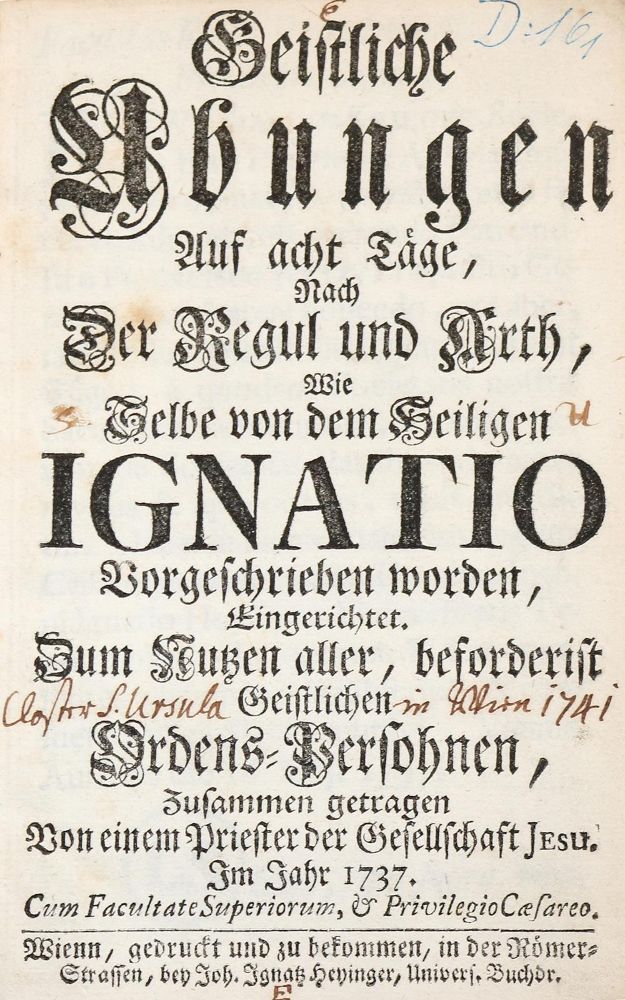 D: 161
Geistliche
Ubungen
Auf acht Täge,
Nach
Der Regul und Arth,
Wie
S. Selbe von dem Heiligen U
IGNATIO
Vorgeschrieben worden,
Eingerichtet.
Zum Nutzen aller, beforderist
Closter S. Ursula Geistlichen in Wien 1741
Ordens-Persohnen,
Zusammen getragen
Von einem Priester der Gesellschaft JESU.
Im Jahr 1737.
Cum Facultate Superiorum, & Privilegio Cæsareo.
Wienn, gedruckt und zu bekommen, in der Römer-
Strassen, bey Joh. Ignatz Heyinger, Univers. Buchdr.